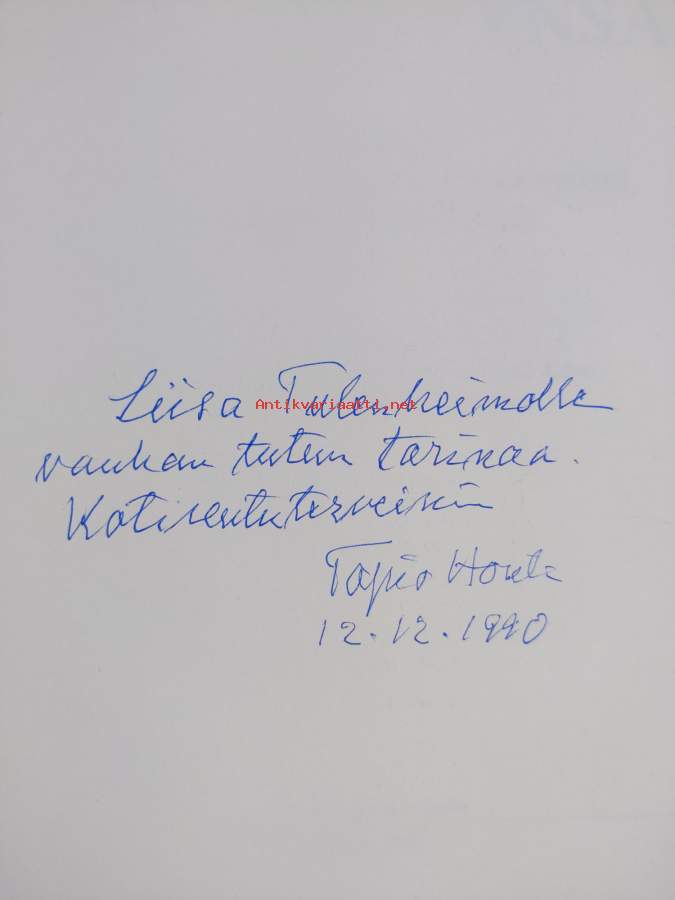 Liisa Tulenheimolle
vanhan tutun tarinaa.
Kotiseututerveisin
Tapio Horila
12.12.1990
Antikvariaatti.net